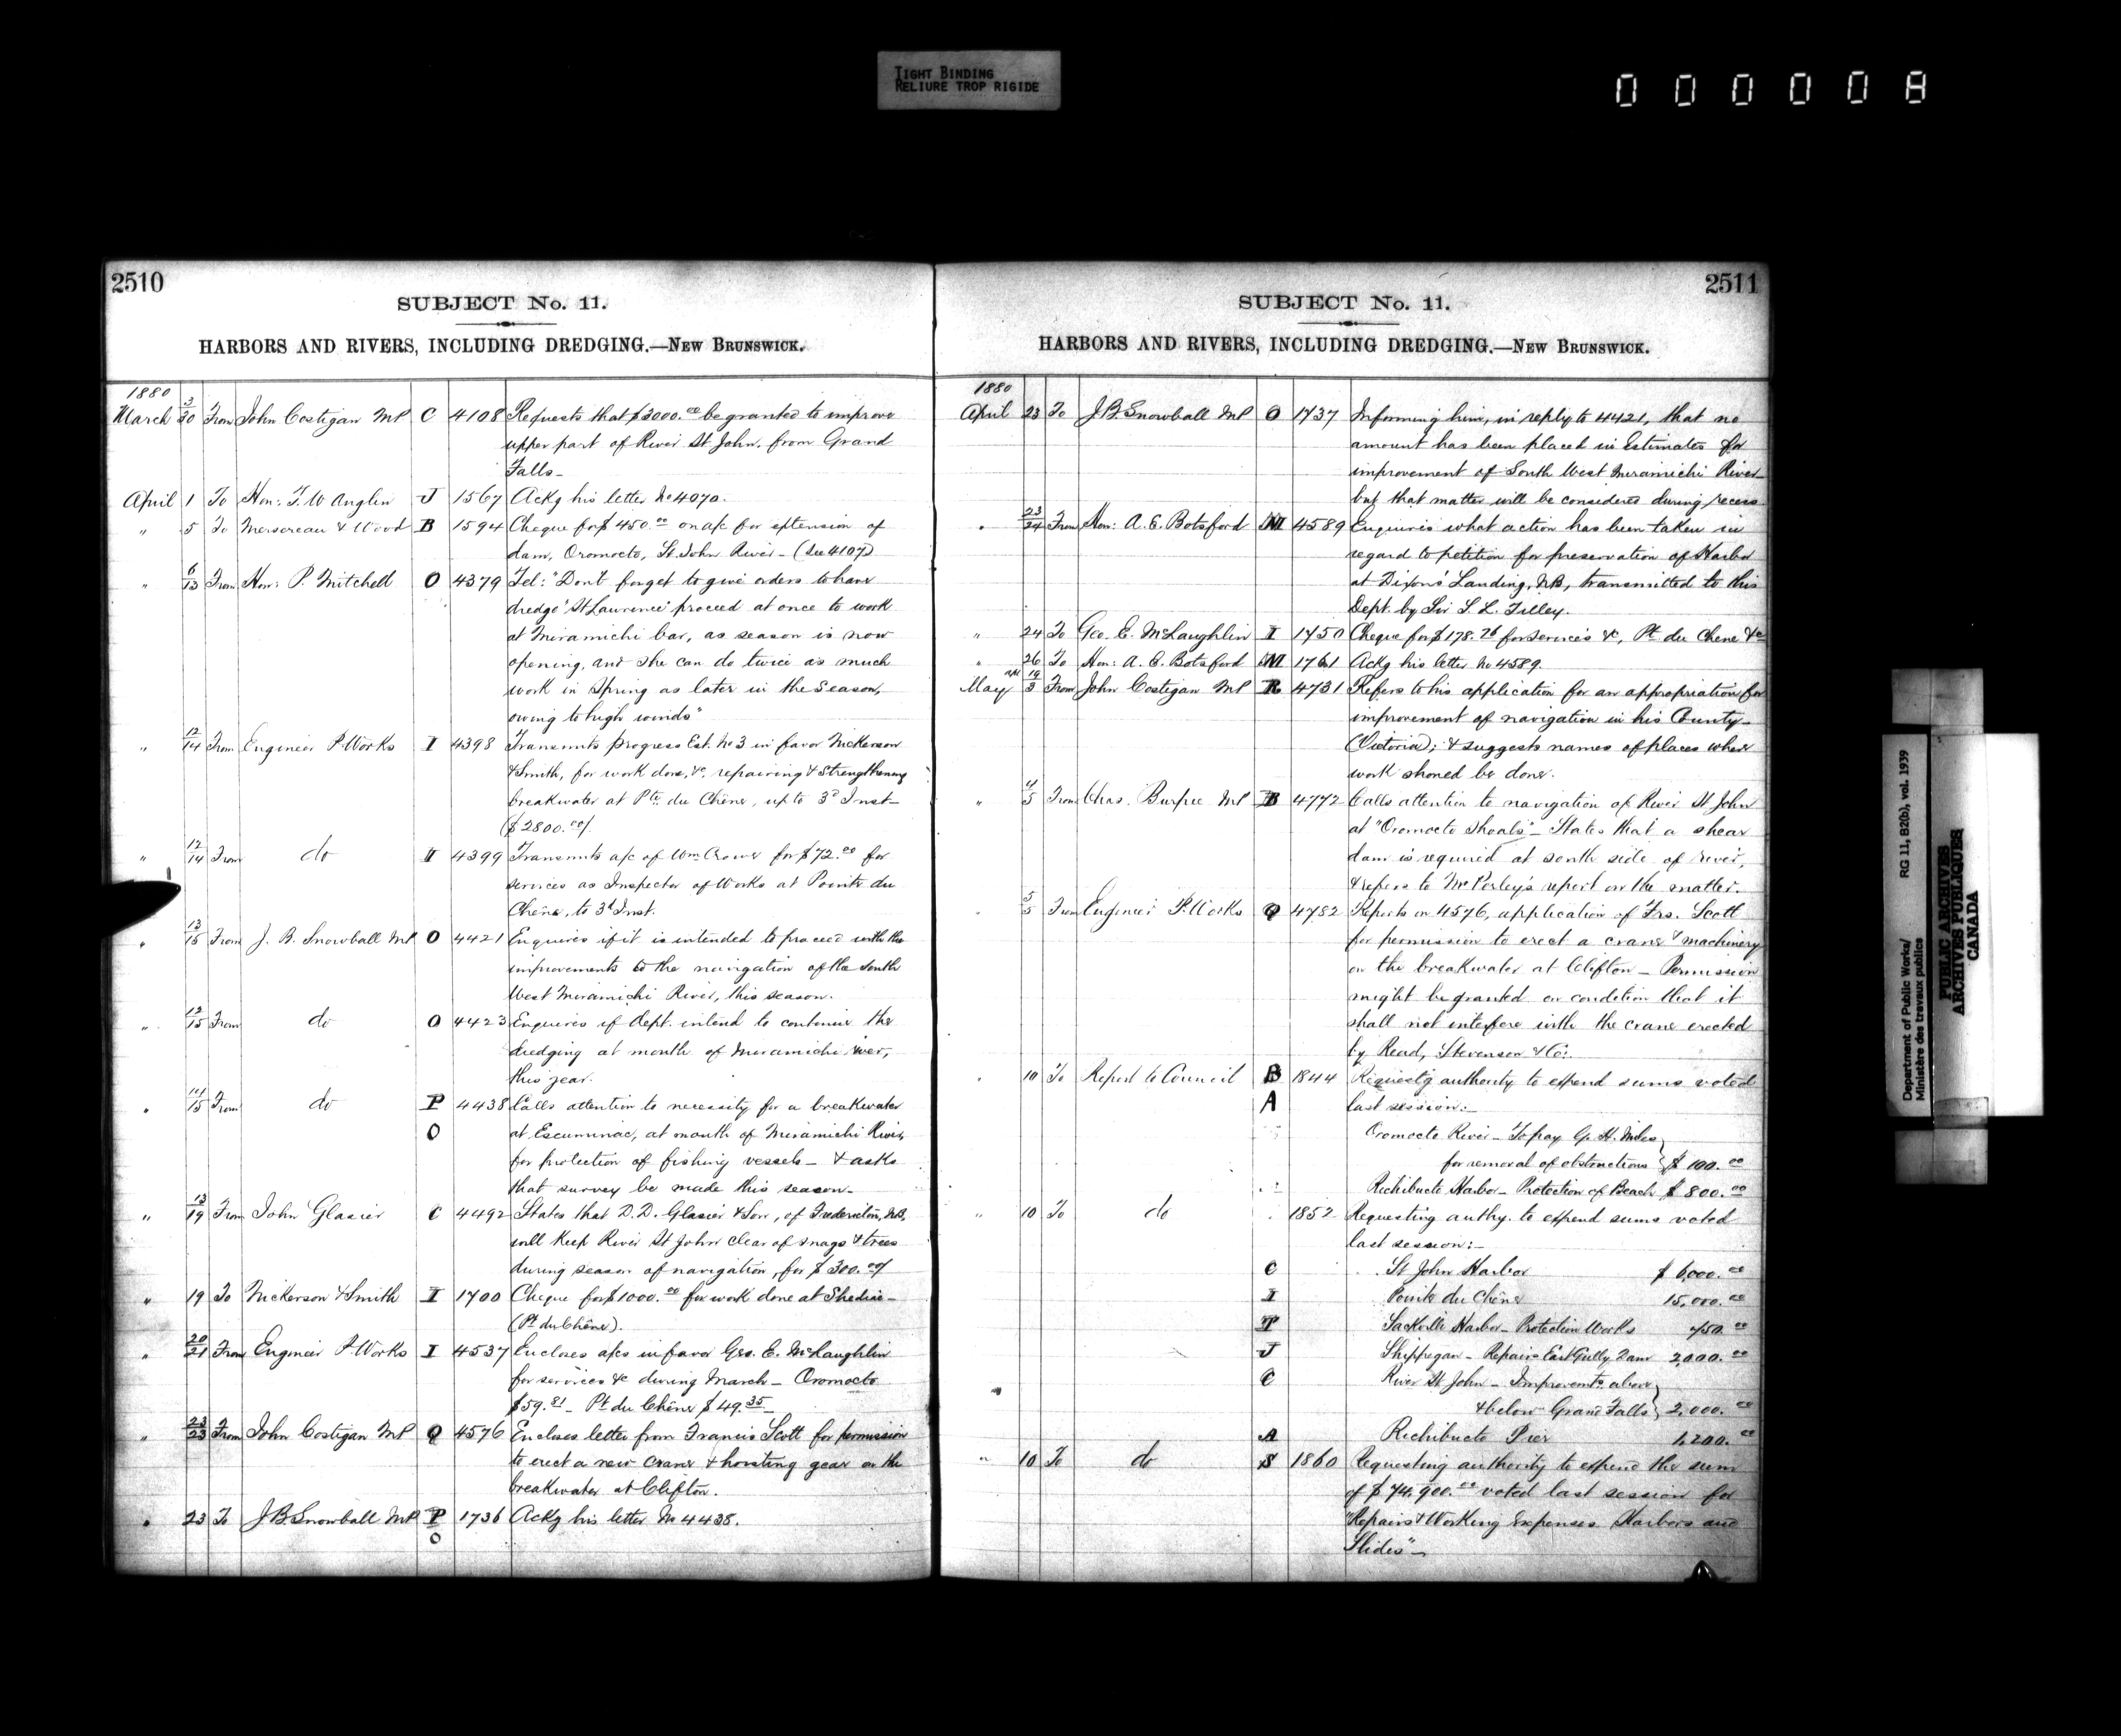 TIGHT BINDING
RELIURE TROP RIGIDE
000008
2510
SUBJECT No. 11.
HARBORS AND RIVERS, INCLUDING DREDGING.—NEW BRUNSWICK.
1880
March 3/30 From John Costigan MP C 4108 Requests that $2000.00 be granted to improve
upper part of River St John, from Grand
Falls—
April 1 To Hon: T. W Anglin J 1567 Ackg his letter No 4070.
" 5 To Mersereau & Wood B 1594 Cheque for $450.00 on a/c for extension of
dam, Oromocto, St. John River — (See 4107)
" 6/13 From Hon: P. Mitchell O 4379 Tel: "Don't forget to give orders to have
dredge 'St Lawrence' proceed at once to work
at Miramichi bar, as season is now
opening, and she can do twice as much
work in Spring as later in the season,
owing to high winds"
" 12/14 From Engineer P. Works I 4398 Transmits progress Est. No 3 in favor Nickerson
& Smith, for work done, &c, repairing & strengthening
breakwater at Pte du Chêne, up to 3d Inst—
($2800.00)
" 12/14 From do I 4399 Transmits a/c of Wm Crower for $72.00 for
services as Inspector of Works at Pointe du
Chêne, to 3d Inst.
" 13/15 From J. B. Snowball MP O 4421 Enquires if it is intended to proceed with the
improvements to the navigation of the South
West Miramichi River, this season.
" 12/15 From do O 4423 Enquires if dept. intend to continue the
dredging at mouth of Miramichi River,
this year.
" 14/15 From do P 4438 Calls attention to necessity for a breakwater
O at Escuminac, at mouth of Miramichi River,
for protection of fishing vessels — & asks
that survey be made this season—
" 13/19 From John Glasier C 4492 States that D. D. Glasier & Son, of Fredericton, NB,
will keep River St John clear of snags & trees
during season of navigation, for $300.00
" 19 To Nickerson & Smith I 1700 Cheque for $1000.00 for work done at Shediac—
(Pt du Chêne).
" 20/21 From Engineer P. Works I 4537 Encloses a/cs in favor Geo. E. McLaughlin
for services &c during March — Oromocto
$59.81 — Pt du Chêne $49.35—
" 23/23 From John Costigan MP Q 4576 Encloses letter from Francis Scott for permission
to erect a new crane & hoisting gear on the
breakwater at Clifton.
" 23 To J B Snowball MP P 1736 Ackg his letter No 4438.
O
2511
SUBJECT No. 11.
HARBORS AND RIVERS, INCLUDING DREDGING.—NEW BRUNSWICK.
1880
April 23 To J. B. Snowball MP O 1737 Informing him, in reply to 4421, that no
amount has been placed in Estimates for
improvement of South West Miramichi River—
but that matter will be considered during recess
" 23/24 From Hon: A. E. Botsford M 4589 Enquires what action has been taken in
regard to petition for preservation of Harbor
at Dixon's Landing, NB, transmitted to this
Dept. by Sir S. L. Tilley.
" 24 To Geo. E. McLaughlin I 1750 Cheque for $178.76 for services &c, Pt du Chene &c
" 26 To Hon: A. E. Botsford M 1761 Ackg his letter No 4589.
May Apl 19/3 From John Costigan MP R 4731 Refers to his application for an appropriation for
improvement of navigation in his County—
(Victoria); & suggests names of places where
work should be done.
" 4/5 From Chas. Burpee MP B 4772 Calls attention to navigation of River St John
at "Oromocto Shoals" — States that a shear
dam is required at south side of river,
& refers to Mr Perley's report on the matter.
" 5/5 From Engineer P. Works Q 4782 Reports on 4576, application of Frs. Scott
for permission to erect a crane & machinery
on the breakwater at Clifton — Permission
might be granted on condition that it
shall not interfere with the crane erected
by Read, Stevenson & Co:.
" 10 To Report to Council B 1844 Requestg authority to expend sums voted
A last session:—
Oromocto River — To pay G. H. Miles
for removal of obstructions } $100.00
Richibucto Harbor — Protection of Beach $800.00
" 10 To do 1852 Requesting authy. to expend sums voted
last session:—
C St John Harbor $6,000.00
I Pointe du Chêne 15,000.00
T Sackville Harbor — Protection Works 450.00
J Shippegan — Repairs East Gully Dam 2,000.00
C River St John — Improvemts above
& below Grand Falls } 2,000.00
A Richibucto Pier 1,200.00
" 10 To do S 1860 Requesting authority to expend the sum
of $74,900.00 voted last session for
"Repairs & Working Expenses Harbors and
Slides"—
Department of Public Works/ RG 11, B2(b), vol. 1939
Ministère des travaux publics
PUBLIC ARCHIVES
ARCHIVES PUBLIQUES
CANADA